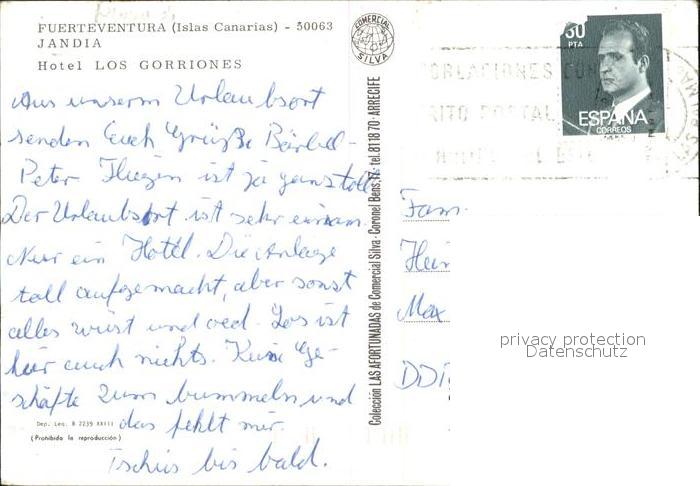 FUERTEVENTURA (Islas Canarias) - 50063
JANDIA
Hotel LOS GORRIONES
Aus unserm Urlaubsort
senden Euch Grüße Bärbel -
Peter Fliegen ist ja ganz toll
Der Urlaubsort ist sehr einsam.
Nur ein Hotel. Die Anlage
toll aufgemacht, aber sonst
alles wüst und oed. Los ist
hier auch nichts. Keine Ge-
schäfte zum bummeln und
das fehlt mir.
Tschüs bis bald.
Dep. Leg. B 2239 XXIII
(Prohibida la reproducción)
COMERCIAL
SILVA
Colección LAS AFORTUNADAS de Comercial Silva - Coronel Bens, 17 - tel. 81 18 70 - ARRECIFE
30
PTA
ESPAÑA
CORREOS
POSTAL
Fam.
Hein
Max
DDR
privacy protection
Datenschutz